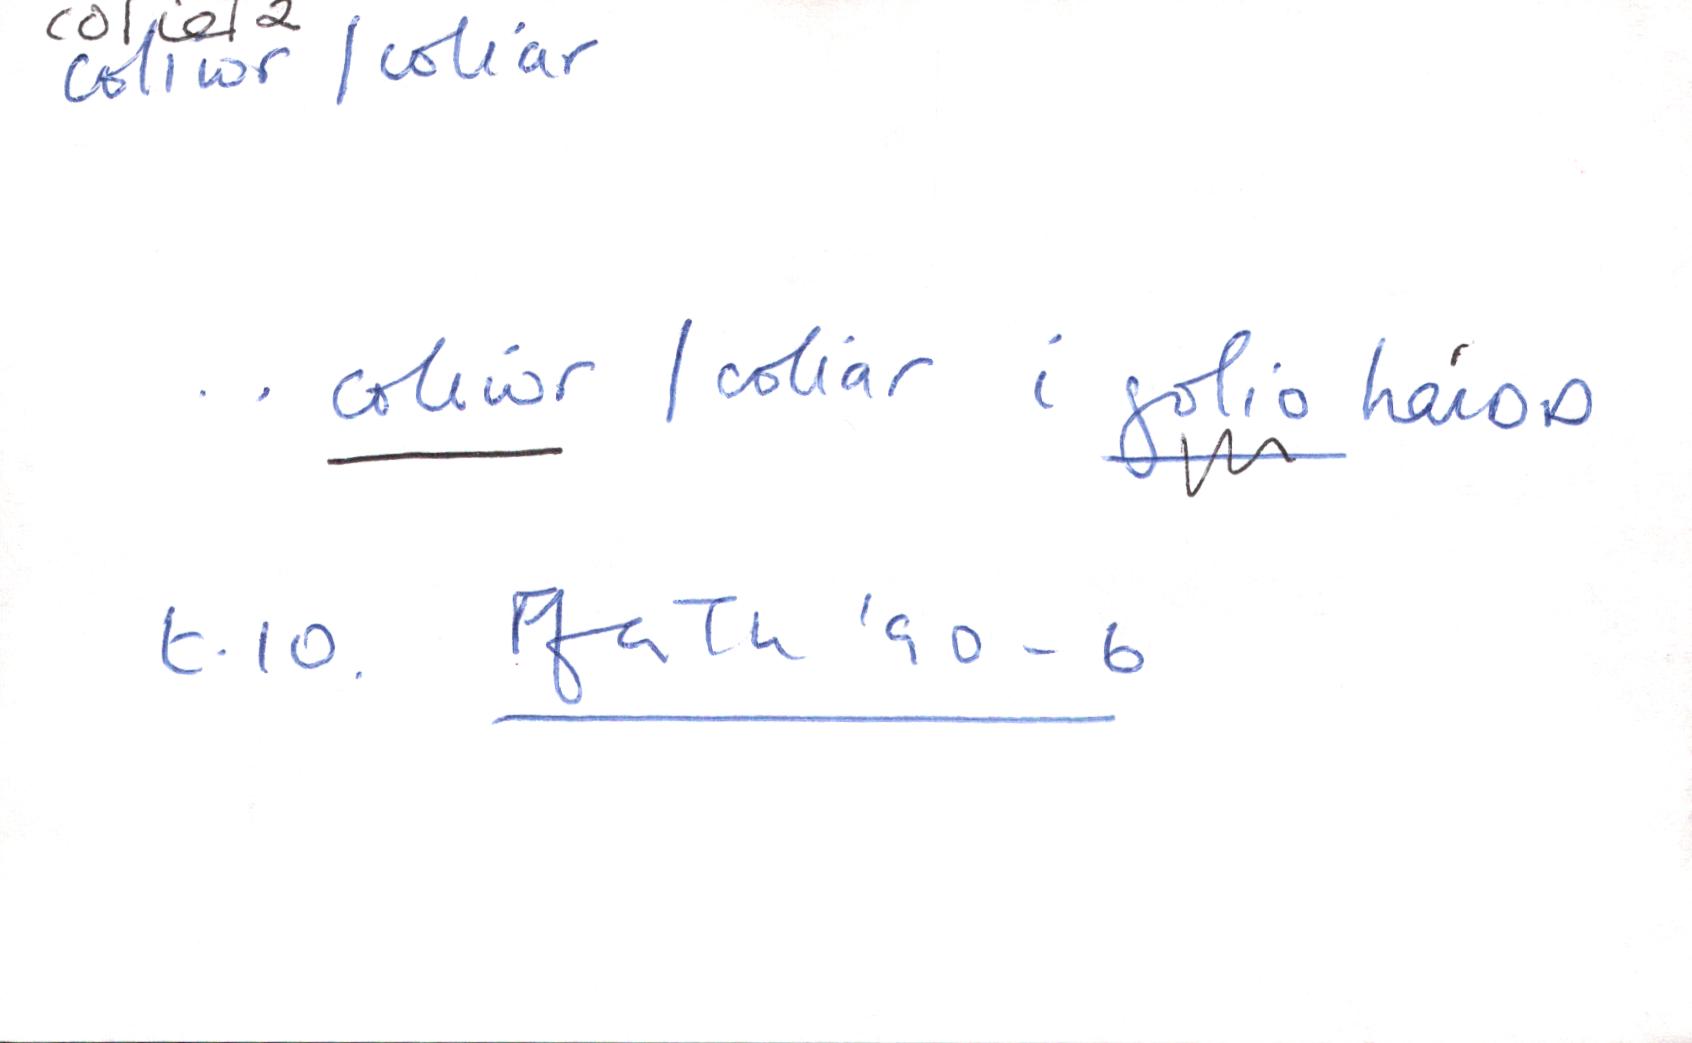 coliwr / coliar
.. coliwr / coliar i golio haidd
t.10. Ffa Th '90-6